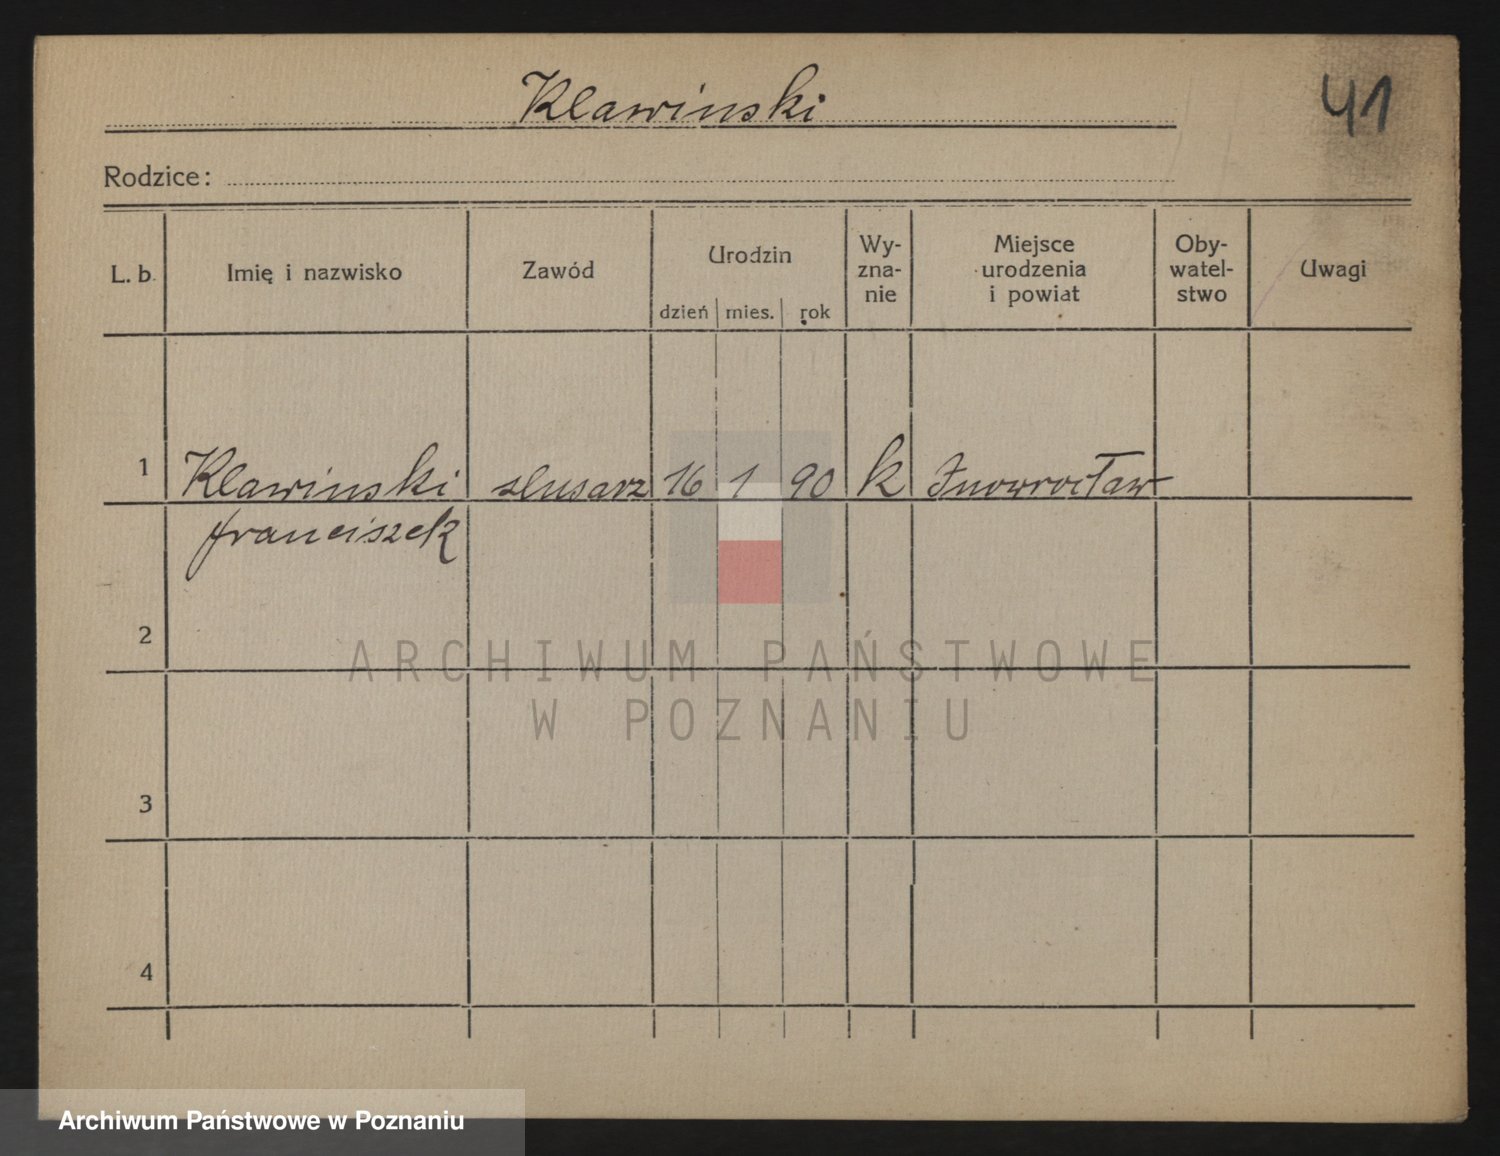 Klawinski
41
Rodzice:
L. b. Imię i nazwisko Zawód Urodzin dzień mies. rok Wy-zna-nie Miejsce urodzenia i powiat Oby-watel-stwo Uwagi
1 Klawinski slusarz 16 1 90 k Inowrocław
franciszek
2
ARCHIWUM PAŃSTWOWE
W POZNANIU
3
4
Archiwum Państwowe w Poznaniu